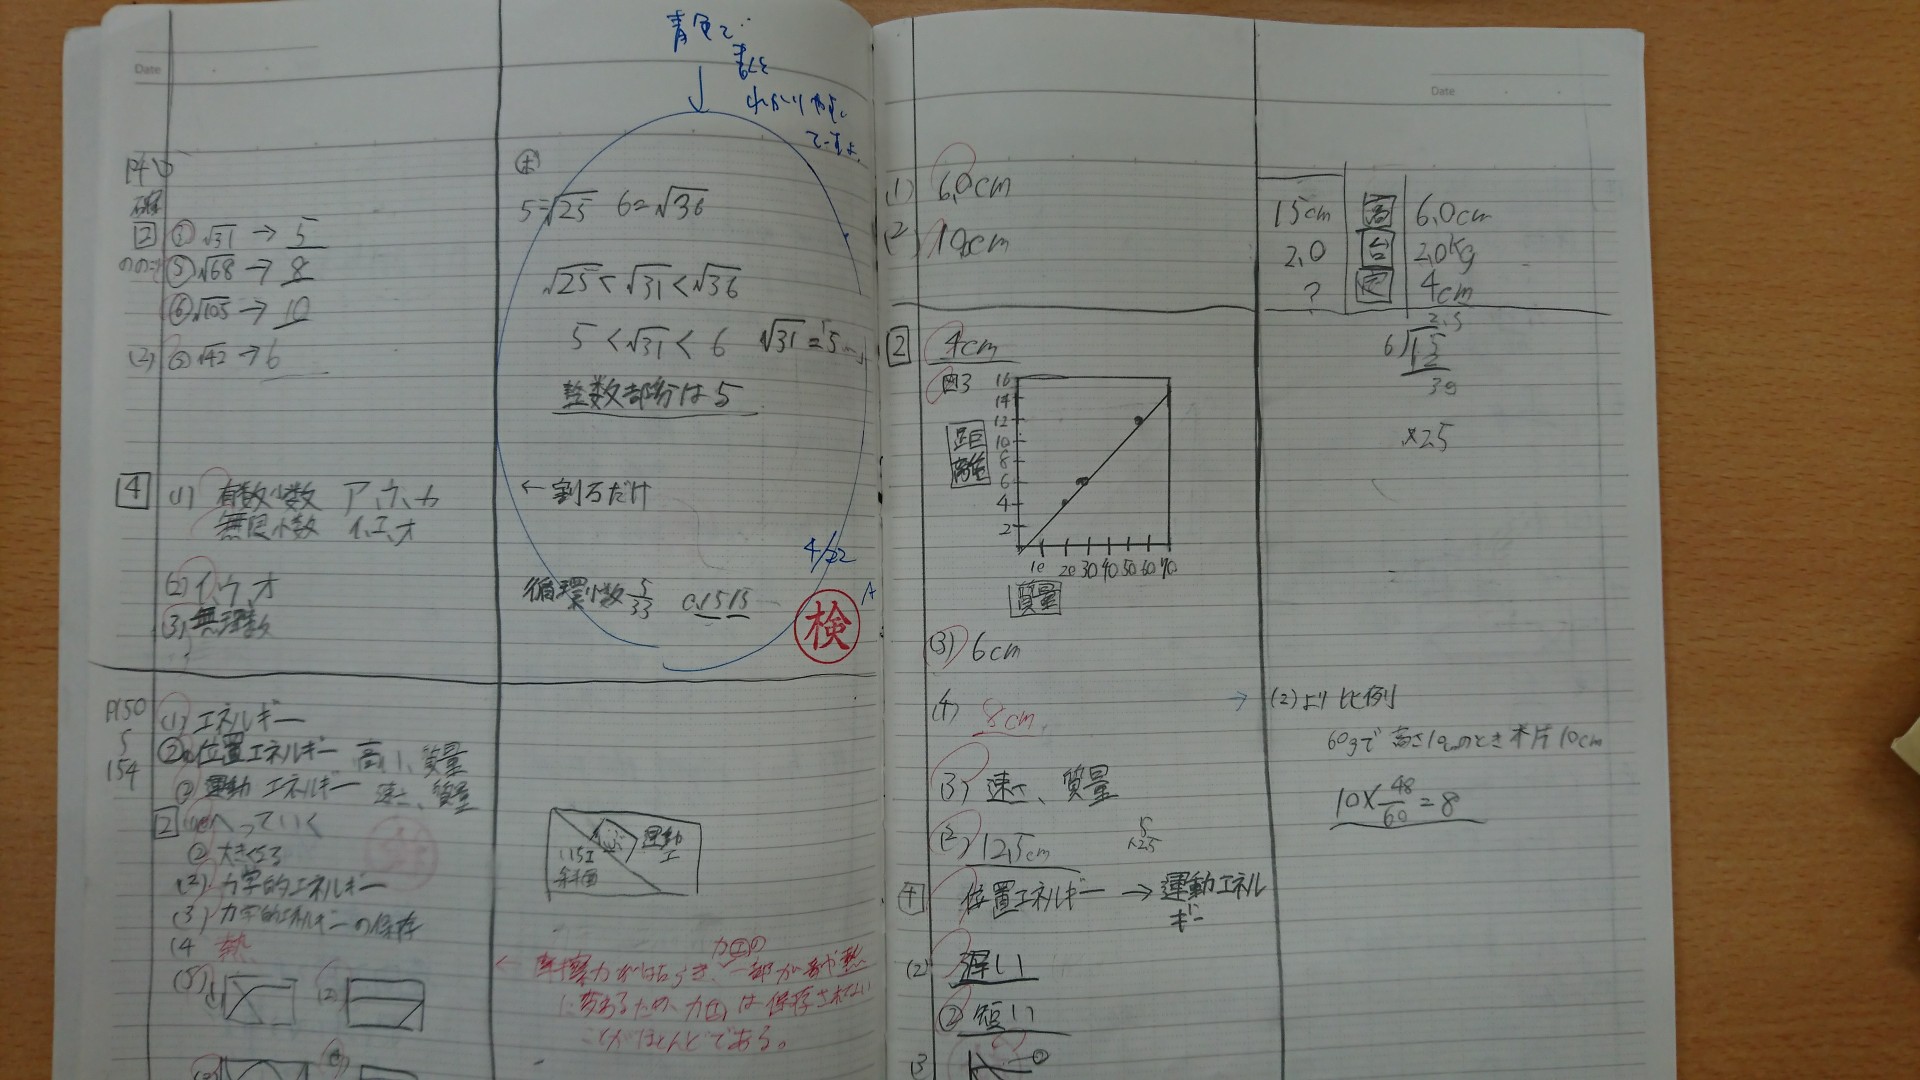 Date
青色で
書くと
わかりやすい
ですよ。
P40
2
① √31 → 5
⑤ √68 → 8
⑥ √105 → 10
(2) ③ √42 → 6
5=√25 6=√36
√25 < √31 < √36
5 < √31 < 6 √31 = 5...
整数部分は5
4 (1) 有数小数 ア、ウ、カ
無限小数 イ、エ、オ
← 割るだけ
(2) イ、ウ、オ
(3) 無理数
循環小数 5/33 0.1515
4/22
検
A
P150
5
154
(1) エネルギー
② 位置エネルギー 高い、質量
② 運動エネルギー 速さ、質量
2 へっていく
② 大きくなる
(2) 力学的エネルギー
(3) 力学的エネルギーの保存
(4 熱
(5)
運動
エ
斜面
← 摩擦力がはたらき、一部が音や熱
に変わるため、力エは保存されない
ことがほとんどである。
Date
(1) 6.0cm
(2) 10cm
15cm 高 6.0cm
2.0 台 2.0kg
? 4cm
2 4cm
2.5
6 15
12
30
×2.5
図3
16
14
12
10
8
6
4
2
距離
10 20 30 40 50 60 70
質量
(3) 6cm
(4) 8cm
→ (2)より比例
60gで高さ10cmのとき木片10cm
10×48/60=8
(3) 速さ、質量
(2) 12.5cm
5
×2.5
4 位置エネルギー → 運動エネル
ギー
(2) 遅い
② 短い
(3